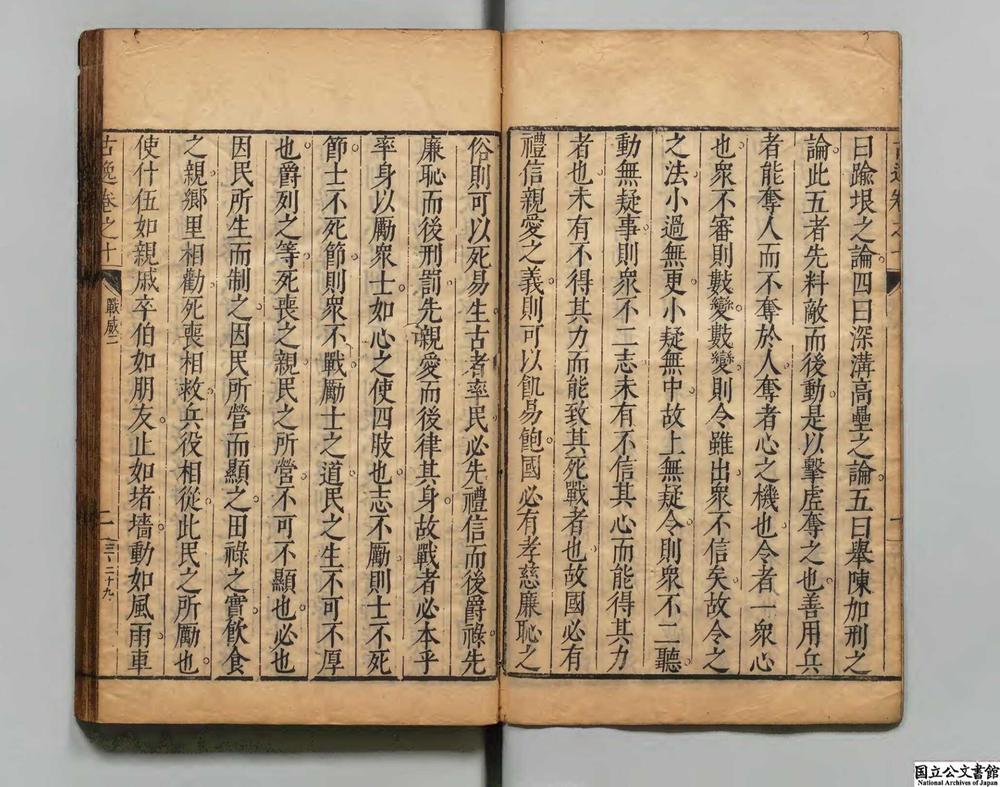 曰踰垠之論四曰深溝高壘之論五曰舉陳加刑之
論此五者先料敵而後動是以擊虛奪之也善用兵
者能奪人而不奪於人奪者心之機也令者一衆心
也衆不審則數變數變則令雖出衆不信矣故令之
之法小過無更小疑無中故上無疑令則衆不二聽
動無疑事則衆不二志未有不信其心而能得其力
者也未有不得其力而能致其死戰者也故國必有
禮信親愛之義則可以飢易飽國必有孝慈廉恥之
俗則可以死易生古者率民必先禮信而後爵祿先
廉恥而後刑罰先親愛而後律其身故戰者必本乎
率身以勵衆士如心之使四肢也志不勵則士不死
節士不死節則衆不戰勵士之道民之生不可不厚
也爵列之等死喪之親民之所營不可不顯也必也
因民所生而制之因民所營而顯之田祿之實飲食
之親鄉里相勸死喪相救兵役相從此民之所勵也
使什伍如親戚卒伯如朋友止如堵墻動如風雨車
古逸卷之十
戰威二
国立公文書館
National Archives of Japan